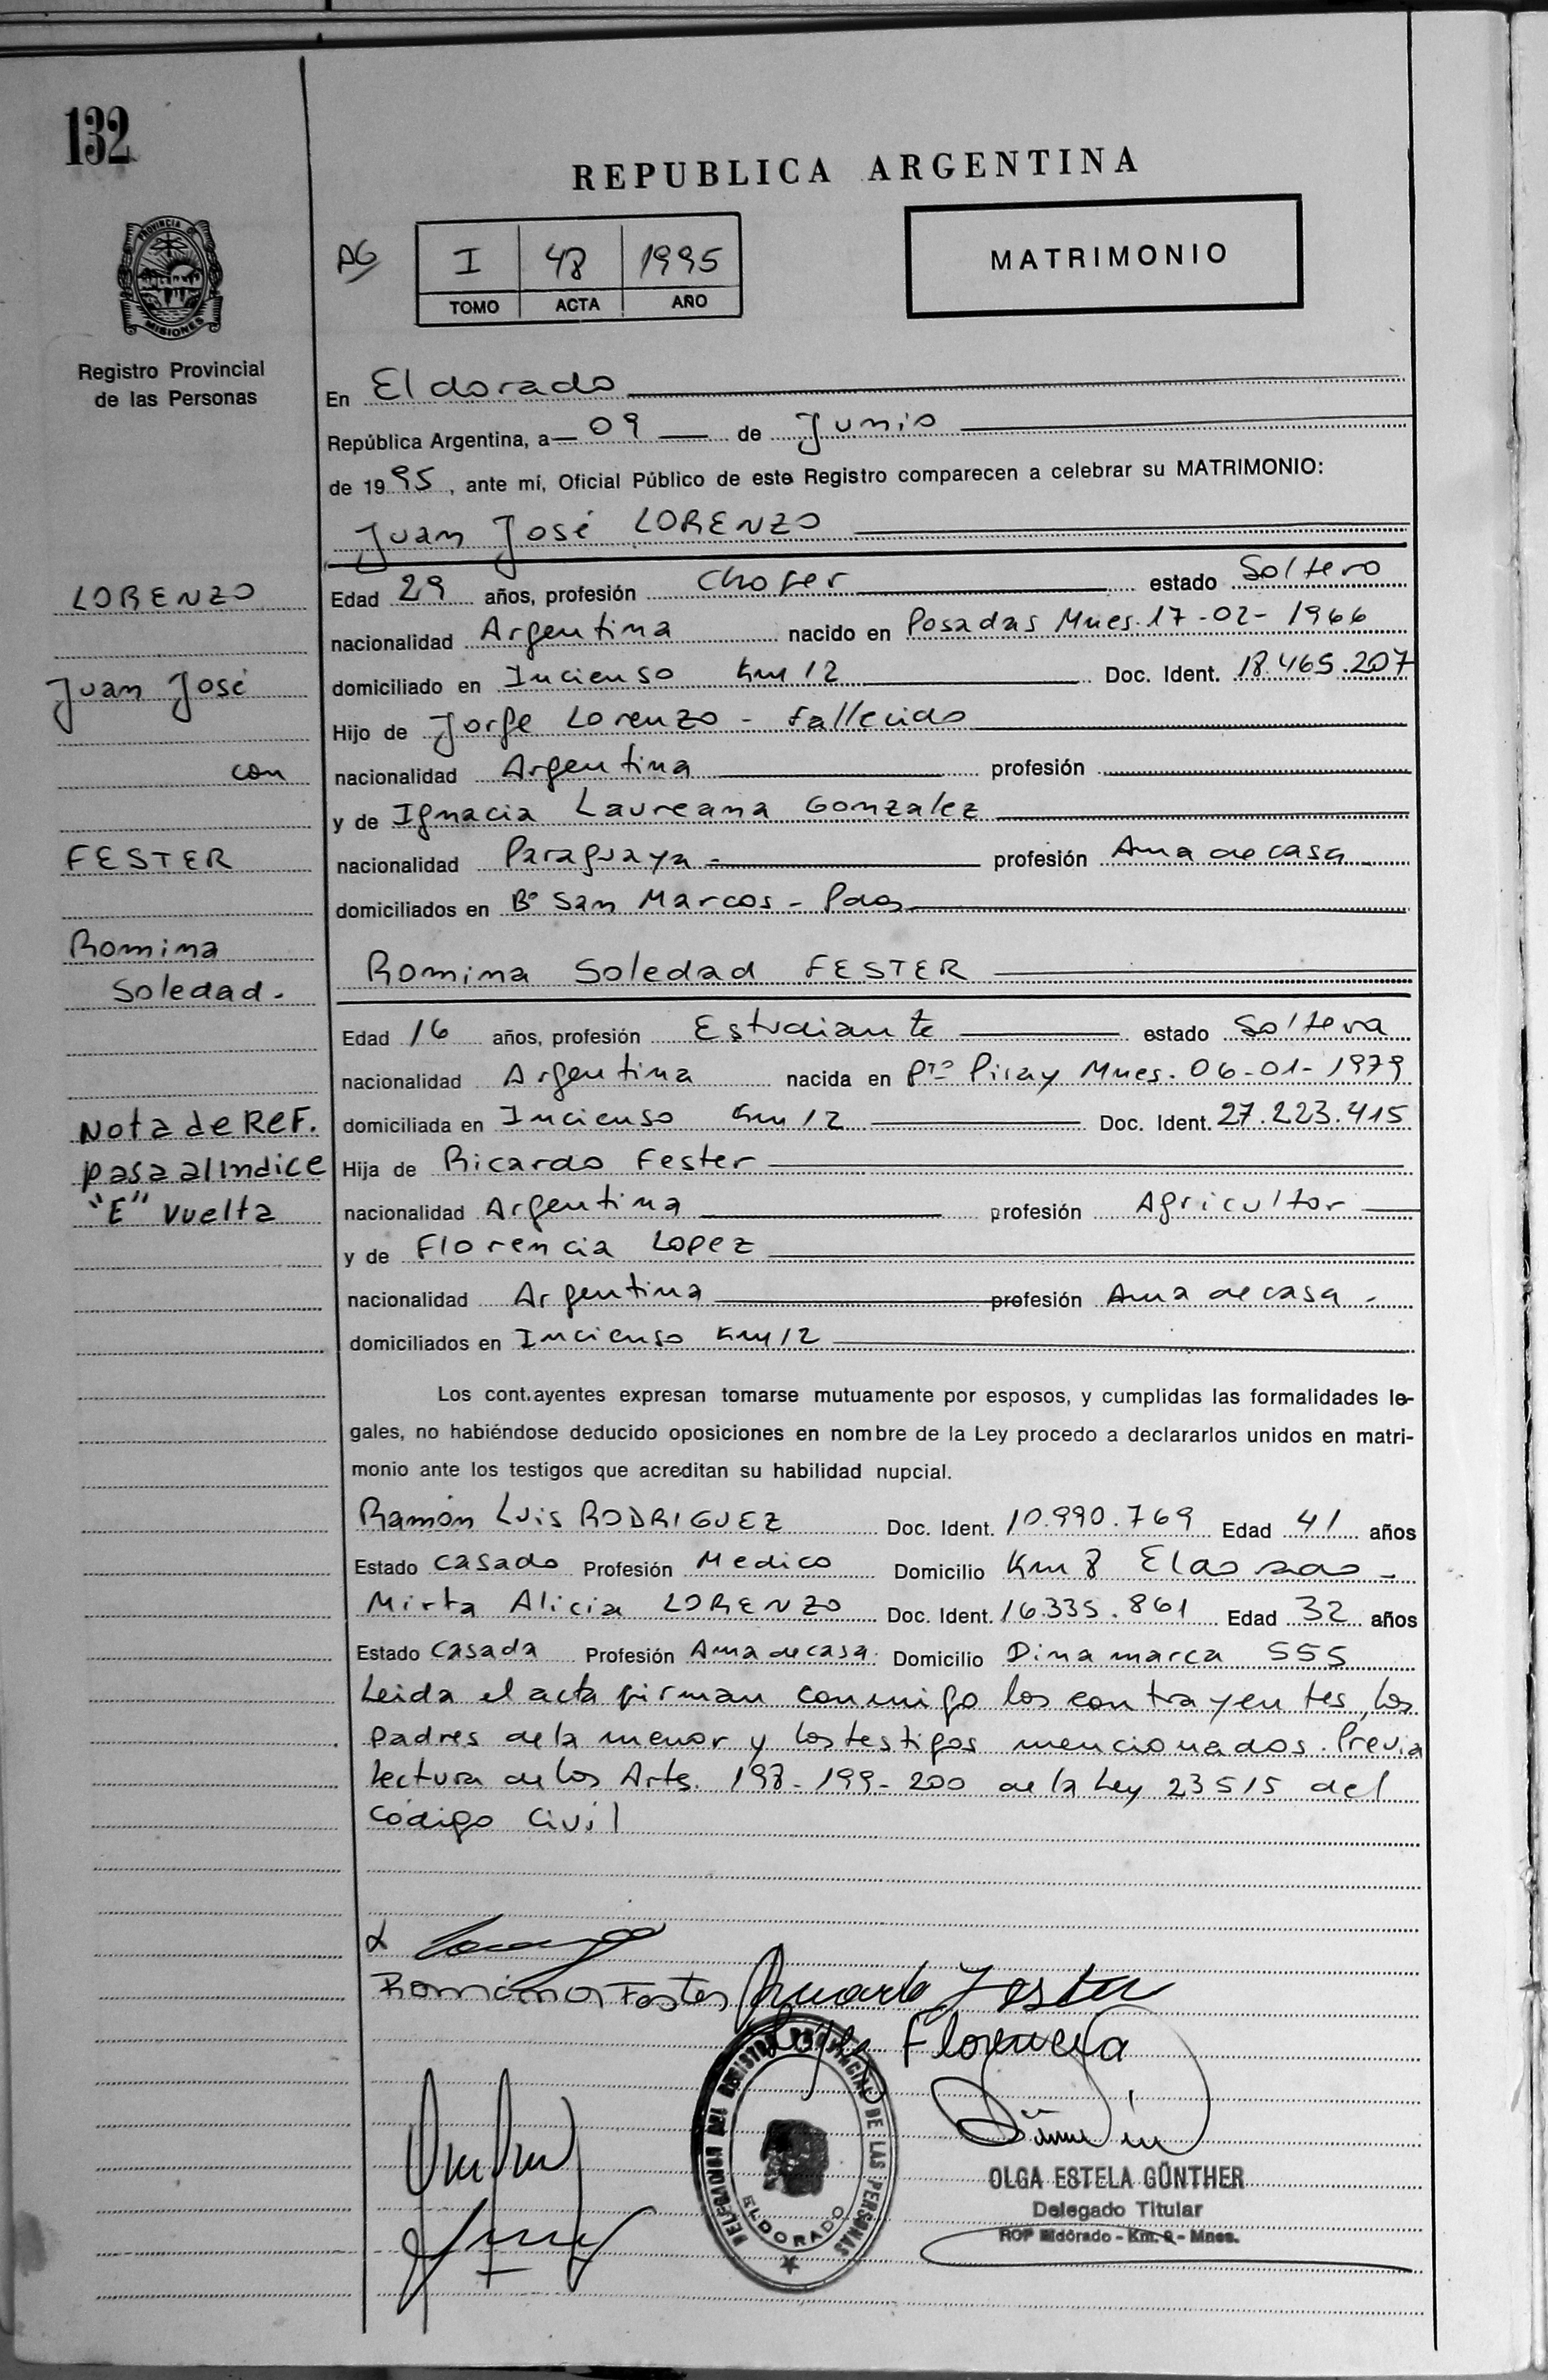 132
REPUBLICA ARGENTINA
PROVINCIA DE
MISIONES
Registro Provincial
de las Personas
AG
I 48 1995
TOMO ACTA AÑO
MATRIMONIO
En Eldorado
República Argentina, a 09 de Junio
de 1995, ante mí, Oficial Público de este Registro comparecen a celebrar su MATRIMONIO:
Juan José LORENZO
LORENZO
Juan José
con
FESTER
Romina
Soledad.
Nota de REF.
pasa al Indice
"E" Vuelta
Edad 29 años, profesión Chofer estado Soltero
nacionalidad Argentina nacido en Posadas Mnes. 17-02-1966
domiciliado en Incienso Km 12 Doc. Ident. 18.465.207
Hijo de Jorge Lorenzo - Fallecido
nacionalidad Argentina profesión
y de Ignacia Laureana Gonzalez
nacionalidad Paraguaya - profesión Ama de casa
domiciliados en B° San Marcos - Pdas
Romina Soledad FESTER
Edad 16 años, profesión Estudiante estado Soltera
nacionalidad Argentina nacida en Pto Piray Mnes. 06-01-1979
domiciliada en Incienso Km 12 Doc. Ident. 27.223.415
Hija de Ricardo Fester
nacionalidad Argentina profesión Agricultor
y de Florencia Lopez
nacionalidad Argentina profesión Ama de casa -
domiciliados en Incienso Km 12
Los cont.ayentes expresan tomarse mutuamente por esposos, y cumplidas las formalidades le-
gales, no habiéndose deducido oposiciones en nombre de la Ley procedo a declararlos unidos en matri-
monio ante los testigos que acreditan su habilidad nupcial.
Ramón Luis RODRIGUEZ Doc. Ident. 10.990.769 Edad 41 años
Estado Casado Profesión Medico Domicilio Km 8 Eldorado -
Mirta Alicia LORENZO Doc. Ident. 16.335.861 Edad 32 años
Estado Casada Profesión Ama de casa. Domicilio Dinamarca 555
Leida el acta firman conmigo los contrayentes, los
padres de la menor y los testigos mencionados. Previa
lectura de los Arts. 198-199-200 de la Ley 23515 del
Código Civil
Romina Fester Ricardo Fester
Lopez Florencia
DELEGACION DEL REGISTRO PROVINCIAL DE LAS PERSONAS
ELDORADO
OLGA ESTELA GÜNTHER
Delegado Titular
RDP Eldorado - Km. 9 - Mnes.